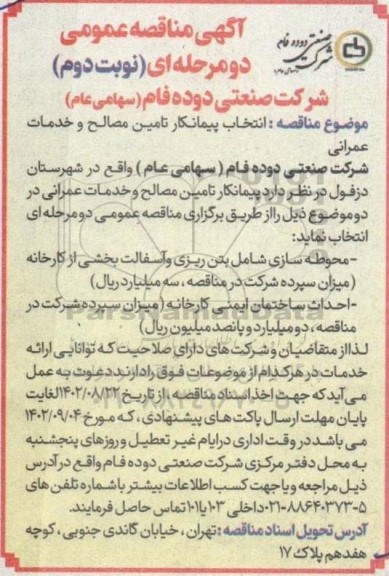 آگهی مناقصه عمومی
دو مرحله ای (نوبت دوم)
شرکت صنعتی دوده فام (سهامی عام)
شرکت صنعتی دوده فام
(سهامی عام)
موضوع مناقصه : انتخاب پیمانکار تامین مصالح و خدمات
عمرانی
شرکت صنعتی دوده فام ( سهامی عام ) واقع در شهرستان
دزفول در نظر دارد پیمانکار تامین مصالح وخدمات عمرانی در
دو موضوع ذیل را از طریق برگزاری مناقصه عمومی دو مرحله ای
انتخاب نماید:
-محوطه سازی شامل بتن ریزی وآسفالت بخشی از کارخانه
(میزان سپرده شرکت در مناقصه ، سه میلیارد ریال)
-احداث ساختمان ایمنی کارخانه (میزان سپرده شرکت در
مناقصه ، دو میلیارد و پانصد میلیون ریال)
لذا از متقاضیان و شرکت های دارای صلاحیت که توانایی ارائه
خدمات در هرکدام از موضوعات فوق را دارند دعوت به عمل
می آید که جهت اخذ اسناد مناقصه ، از تاریخ ۱۴۰۲/۰۸/۲۲ لغایت
پایان مهلت ارسال پاکت های پیشنهادی ، که مورخ ۱۴۰۲/۰۹/۰۴
می باشد در وقت اداری در ایام غیر تعطیل و روزهای پنجشنبه
به محل دفتر مرکزی شرکت صنعتی دوده فام واقع در آدرس
ذیل مراجعه و یا جهت کسب اطلاعات بیشتر با شماره تلفن های
۰۲۱-۸۸۶۴۰۳۷۳-۵ داخلی ۱۰۳ یا ۱۰۱ تماس حاصل فرمایند.
آدرس تحویل اسناد مناقصه : تهران ، خیابان گاندی جنوبی ، کوچه
هفدهم پلاک ۱۷